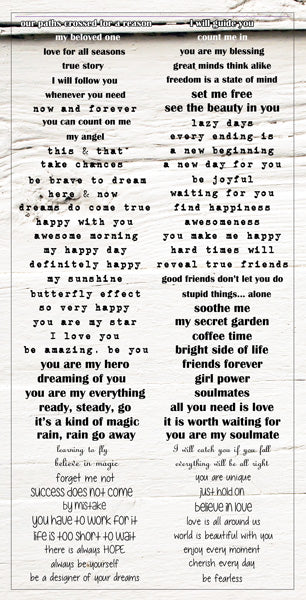 our paths crossed for a reason
my beloved one
love for all seasons
true story
I will follow you
whenever you need
now and forever
you can count on me
my angel
this & that
take chances
be brave to dream
here & now
dreams do come true
happy with you
awesome morning
my happy day
definitely happy
my sunshine
butterfly effect
so very happy
you are my star
I love you
be amazing, be you
you are my hero
dreaming of you
you are my everything
ready, steady, go
it's a kind of magic
rain, rain go away
learning to fly
believe in magic
forget me not
success does not come
by mistake
you have to work for it
life is too short to wait
there is always HOPE
always be yourself
be a designer of your dreams
I will guide you
count me in
you are my blessing
great minds think alike
freedom is a state of mind
set me free
see the beauty in you
lazy days
every ending is
a new beginning
a new day for you
be joyful
waiting for you
find happiness
awesomeness
you make me happy
hard times will
reveal true friends
good friends don't let you do
stupid things... alone
soothe me
my secret garden
coffee time
bright side of life
friends forever
girl power
soulmates
all you need is love
it is worth waiting for
you are my soulmate
I will catch you if you fall
everything will be all right
you are unique
just hold on
believe in love
love is all around us
world is beautiful with you
enjoy every moment
cherish every day
be fearless